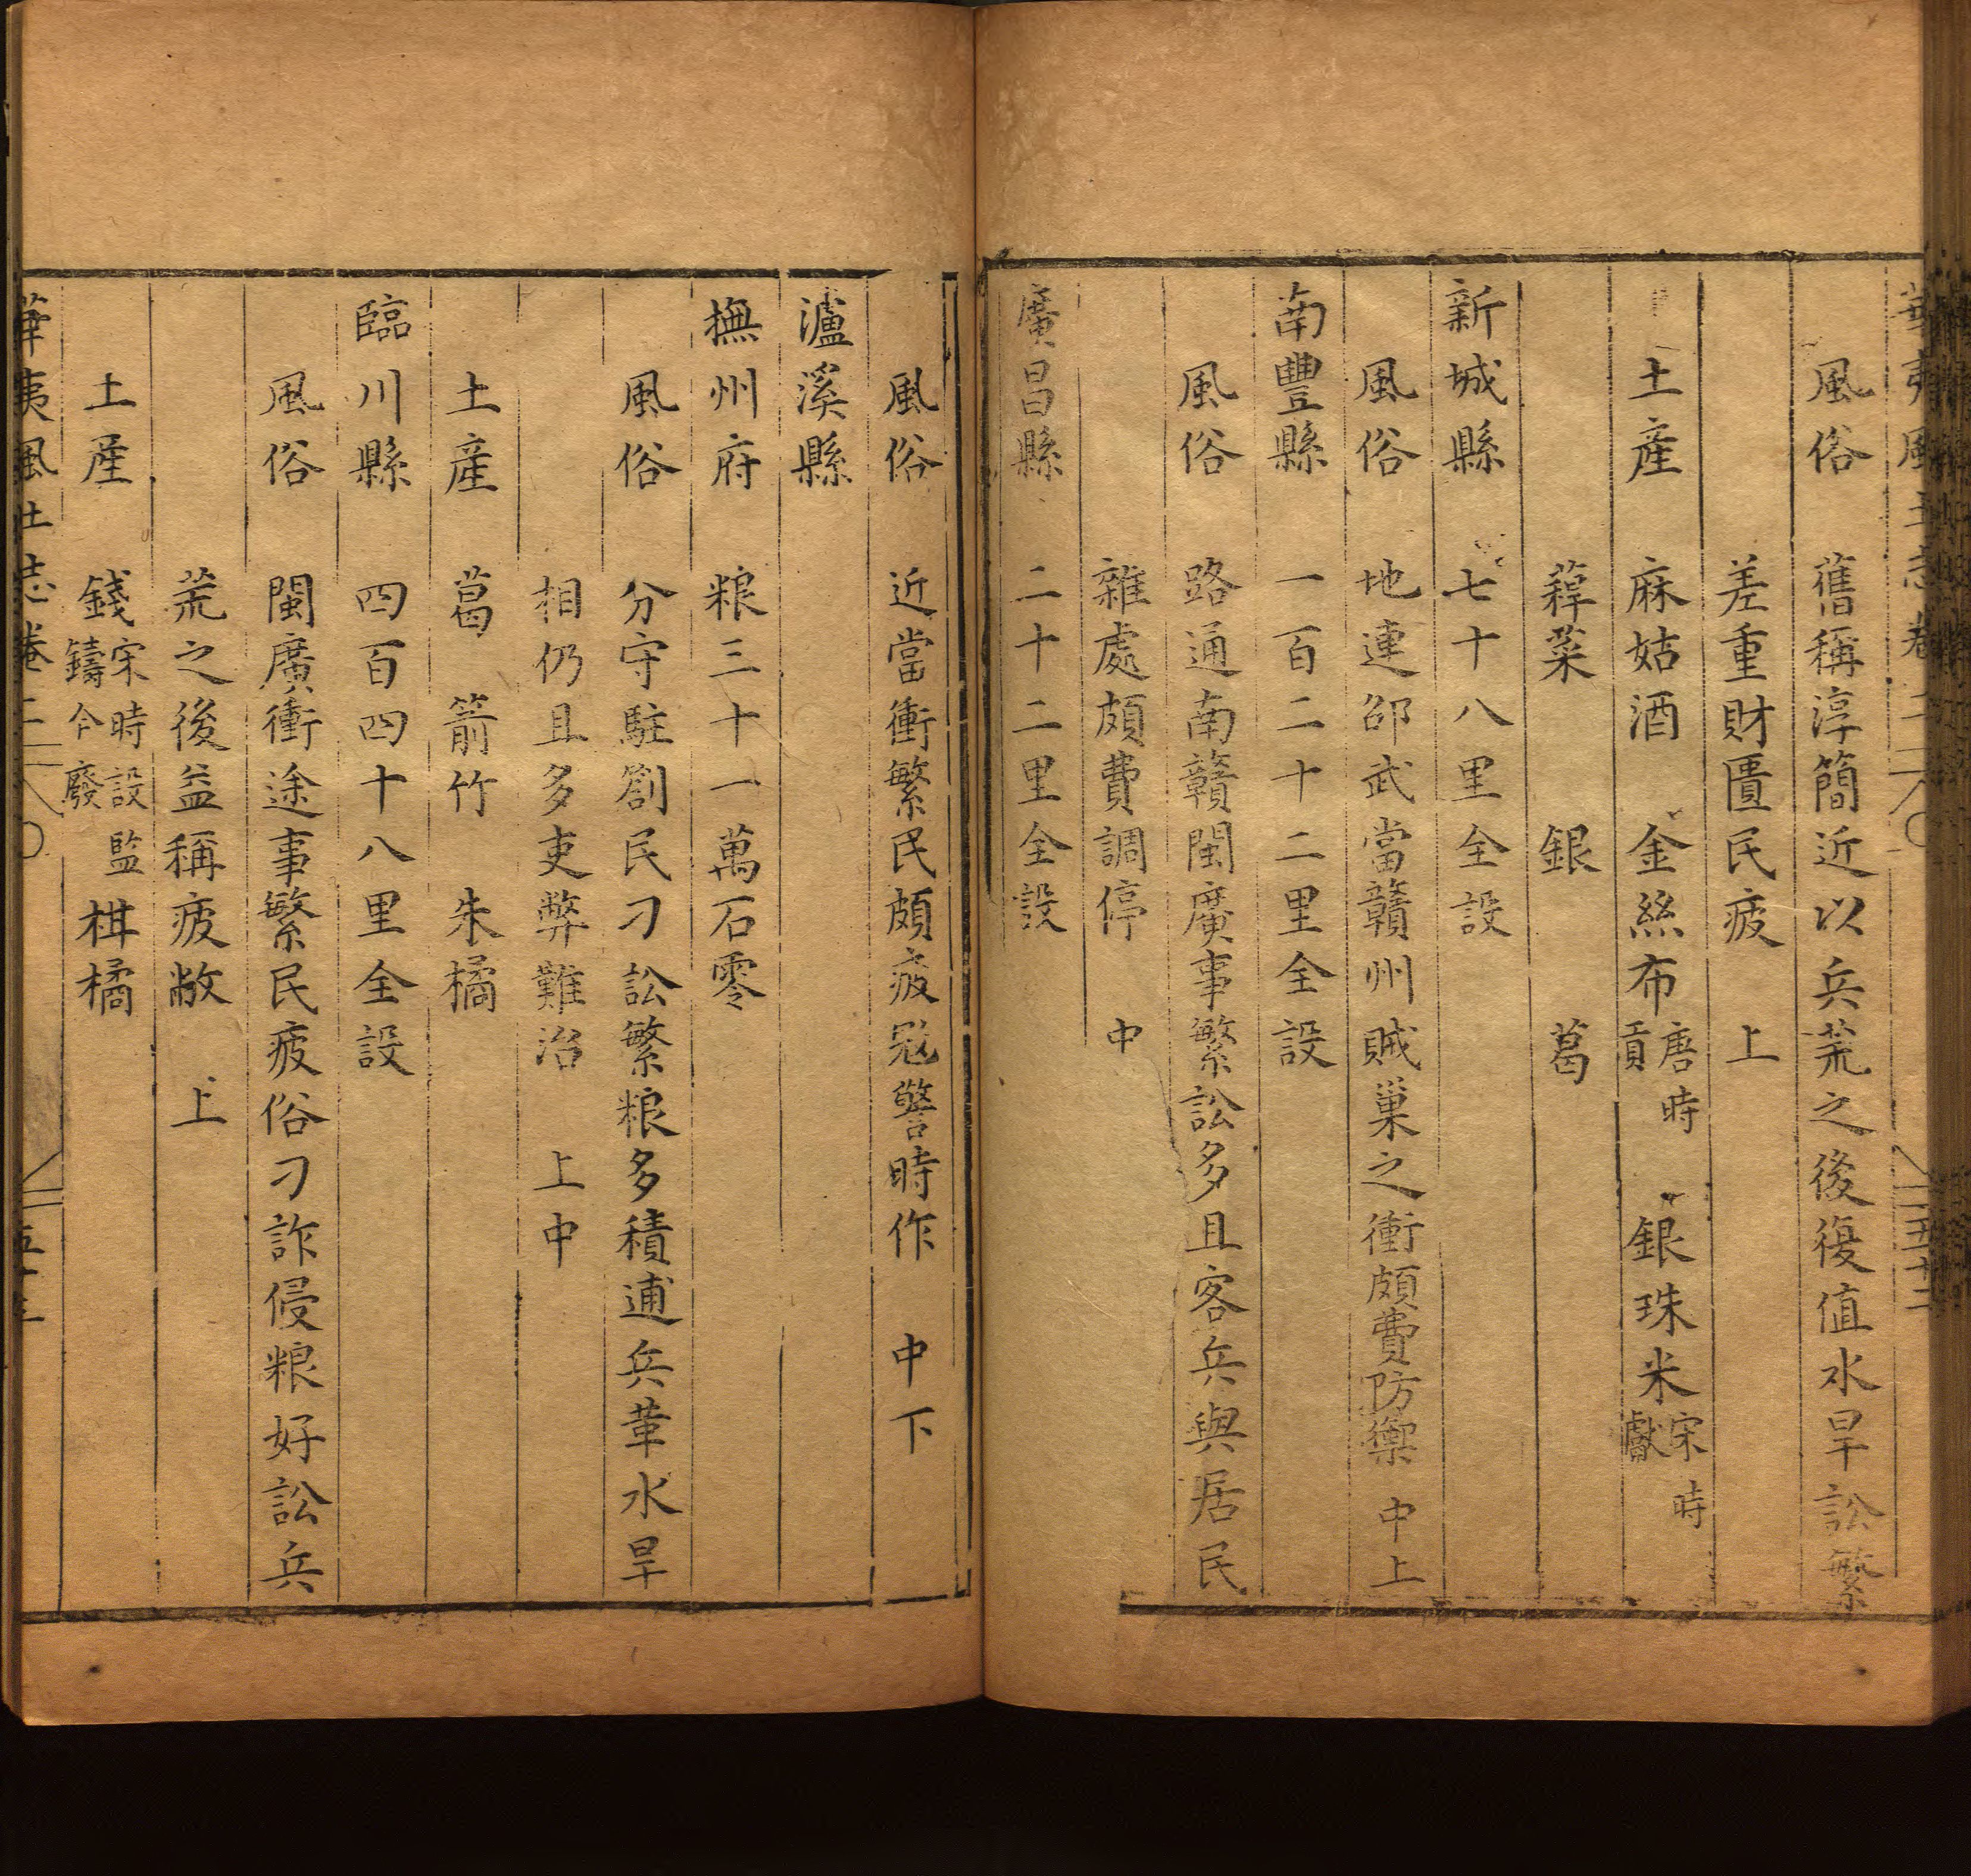 華夷風土志卷二 五十二
風俗 舊稱淳簡近以兵荒之後復值水旱訟繁
差重財匱民疲 上
土産 麻姑酒 金絲布唐時貢 銀珠米宋時獻
蕣菜 銀 葛
新城縣 七十八里全設
風俗 地連邵武當贛州賊巢之衝頗費防禦 中上
南豐縣 一百二十二里全設
風俗 路通南贛閩廣事繁訟多且客兵與居民
雜處頗費調停 中
廣昌縣 二十二里全設
風俗 近當衝繁民頗疲冦警時作 中下
瀘溪縣
撫州府 粮三十一萬石零
風俗 分守駐劄民刁訟繁粮多積逋兵革水旱
相仍且多吏弊難治 上中
土産 葛 箭竹 朱橘
臨川縣 四百四十八里全設
風俗 閩廣衝途事繁民疲俗刁詐侵粮好訟兵
荒之後益稱疲敝 上
土産 錢宋時設監鑄今廢 柑橘
華夷風土志卷二